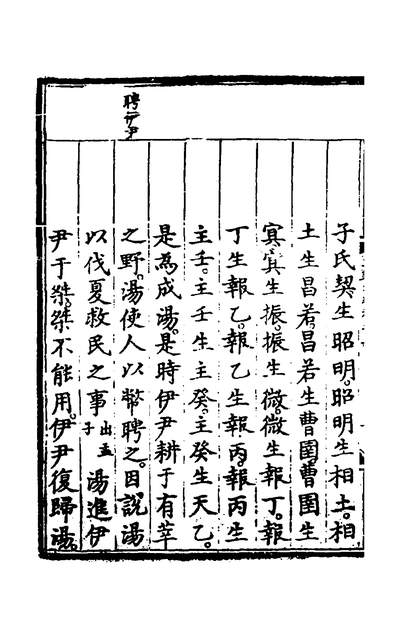 子氏契生昭明。昭明生相土。相
土生昌若。昌若生曹圉。曹圉生
冥。冥生振。振生微。微生報丁。報
丁生報乙。報乙生報丙。報丙生
主壬。主壬生主癸。主癸生天乙。
是為成湯。是時伊尹耕于有莘
之野。湯使人以幣聘之。因說湯
以伐夏救民之事出孟子湯進伊
尹于桀。桀不能用。伊尹復歸湯。
聘伊尹